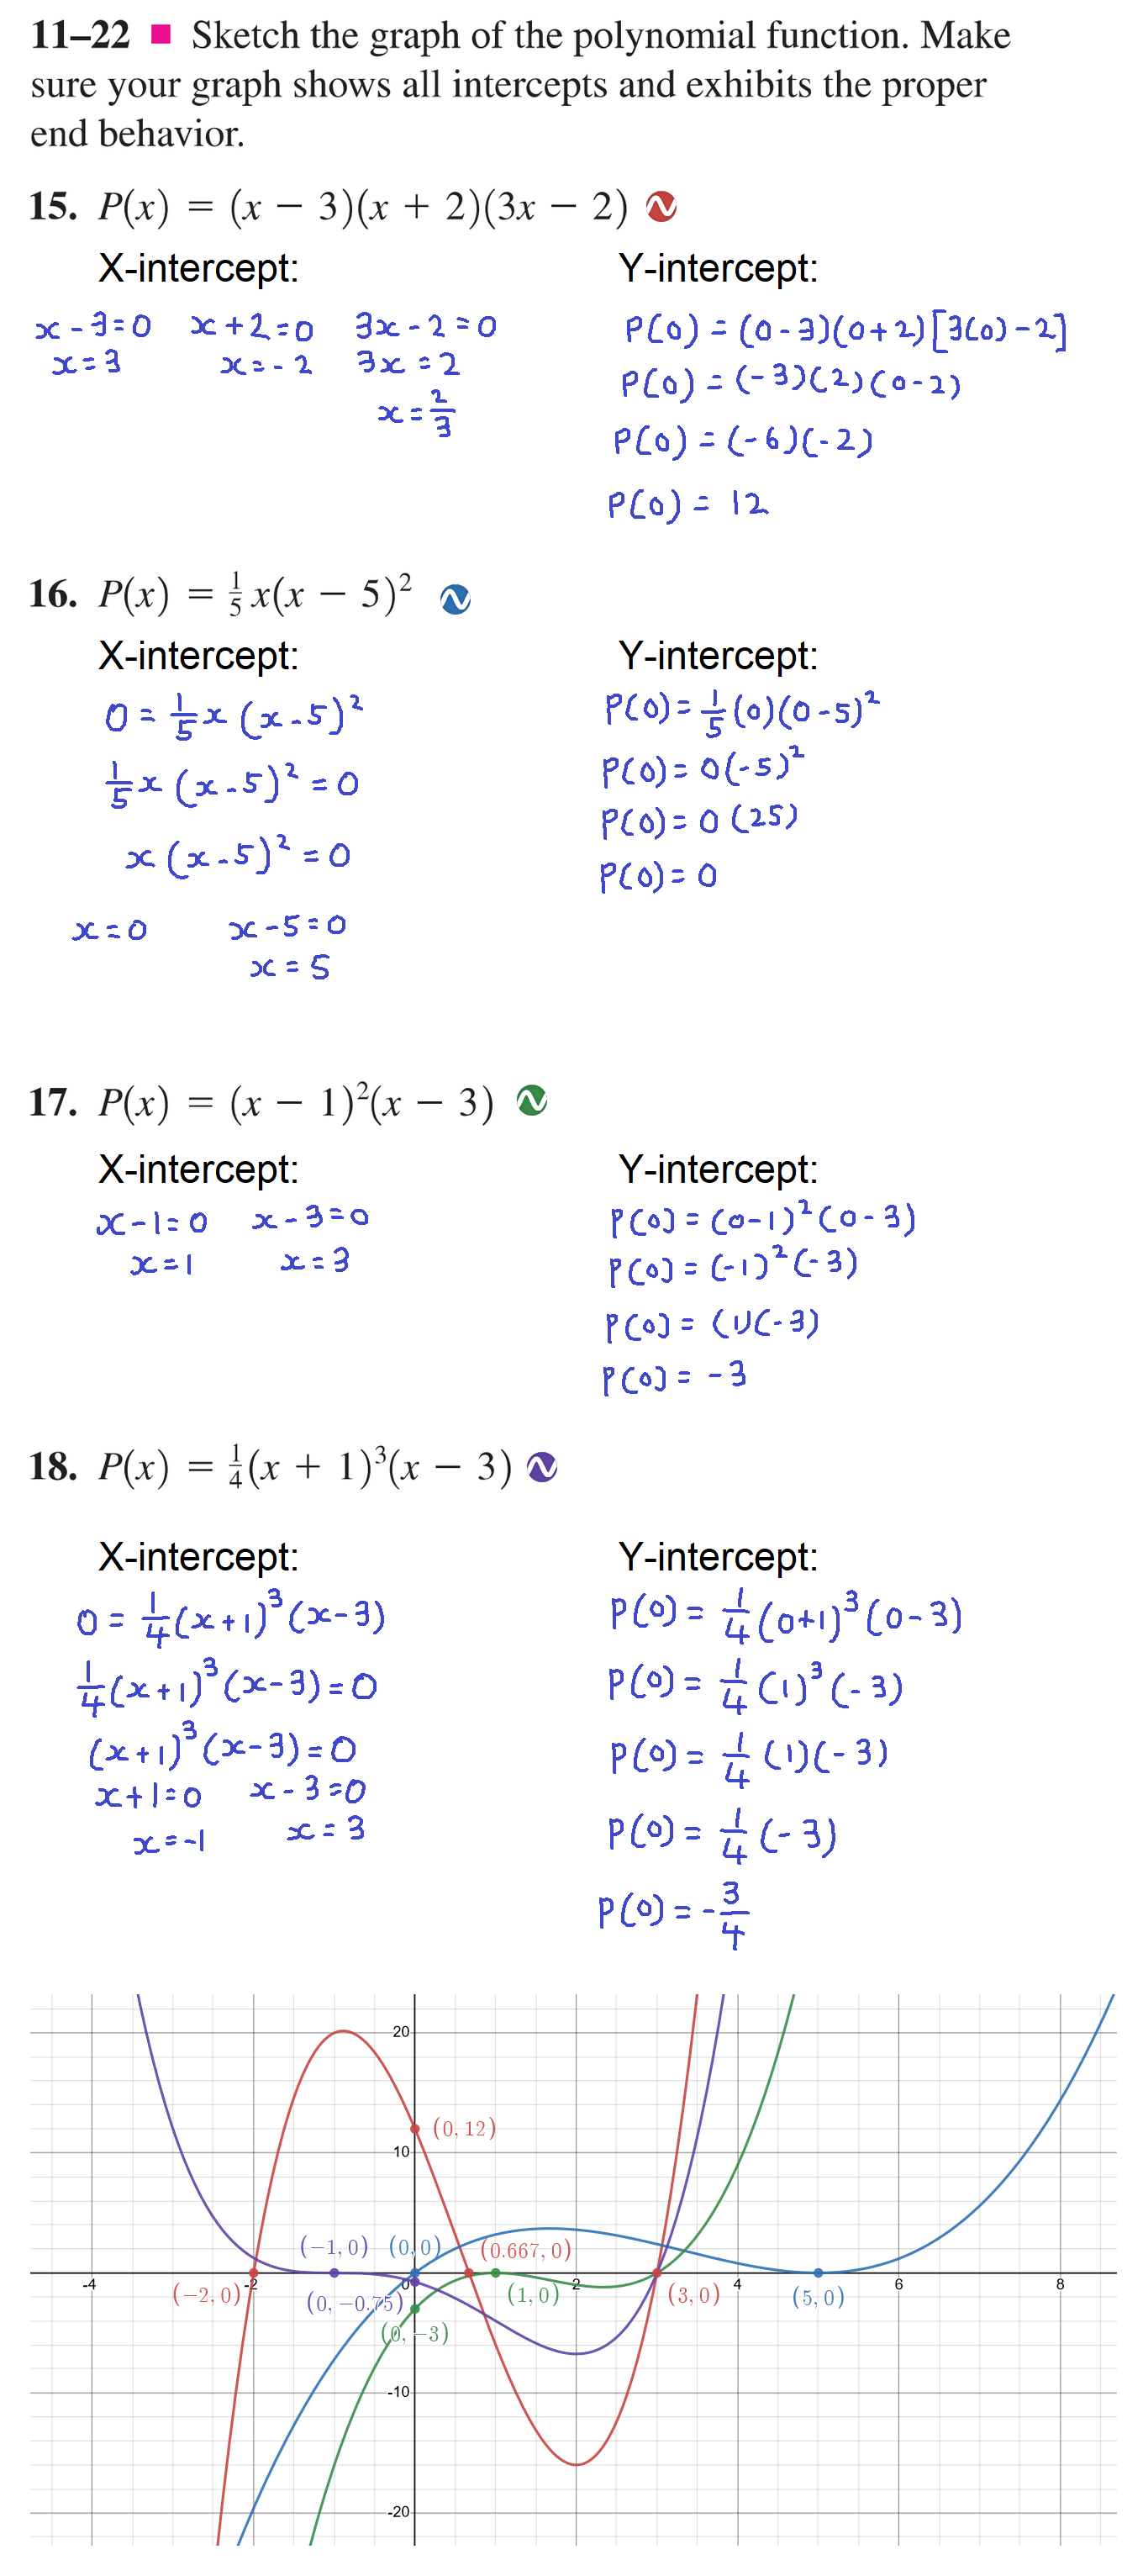 11–22 ■ Sketch the graph of the polynomial function. Make
sure your graph shows all intercepts and exhibits the proper
end behavior.
15. P(x) = (x − 3)(x + 2)(3x − 2)
X-intercept:
x-3=0 x+2=0 3x-2=0
x=3 x=-2 3x=2
x=2/3
Y-intercept:
P(0)=(0-3)(0+2)[3(0)-2]
P(0)=(-3)(2)(0-2)
P(0)=(-6)(-2)
P(0)=12
16. P(x) = 1/5 x(x − 5)²
X-intercept:
0=1/5x(x-5)²
1/5x(x-5)²=0
x(x-5)²=0
x=0 x-5=0
x=5
Y-intercept:
P(0)=1/5(0)(0-5)²
P(0)=0(-5)²
P(0)=0(25)
P(0)=0
17. P(x) = (x − 1)²(x − 3)
X-intercept:
x-1=0 x-3=0
x=1 x=3
Y-intercept:
P(0)=(0-1)²(0-3)
P(0)=(-1)²(-3)
P(0)=(1)(-3)
P(0)=-3
18. P(x) = 1/4(x + 1)³(x − 3)
X-intercept:
0=1/4(x+1)³(x-3)
1/4(x+1)³(x-3)=0
(x+1)³(x-3)=0
x+1=0 x-3=0
x=-1 x=3
Y-intercept:
P(0)=1/4(0+1)³(0-3)
P(0)=1/4(1)³(-3)
P(0)=1/4(1)(-3)
P(0)=1/4(-3)
P(0)=-3/4
20
(0, 12)
10
(−1, 0) (0, 0) (0.667, 0)
-4 -2 0 2 4 6 8
(−2, 0) (0, −0.75) (1, 0) (3, 0) (5, 0)
(0, −3)
-10
-20